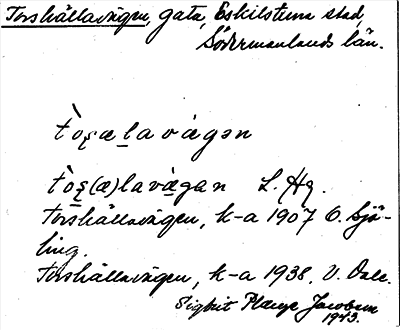 Torshällavägen, gata, Eskilstuna stad,
Södermanlands län.
t̀òʂælavágən
t̀òʂ(æ)lavägan L. Hq.
Torshällavägen, k-a 1907 O. Sjö-
ling.
Torshällavägen, k-a 1938. V. Dale.
Sigbrit Plænge Jacobson
1943.